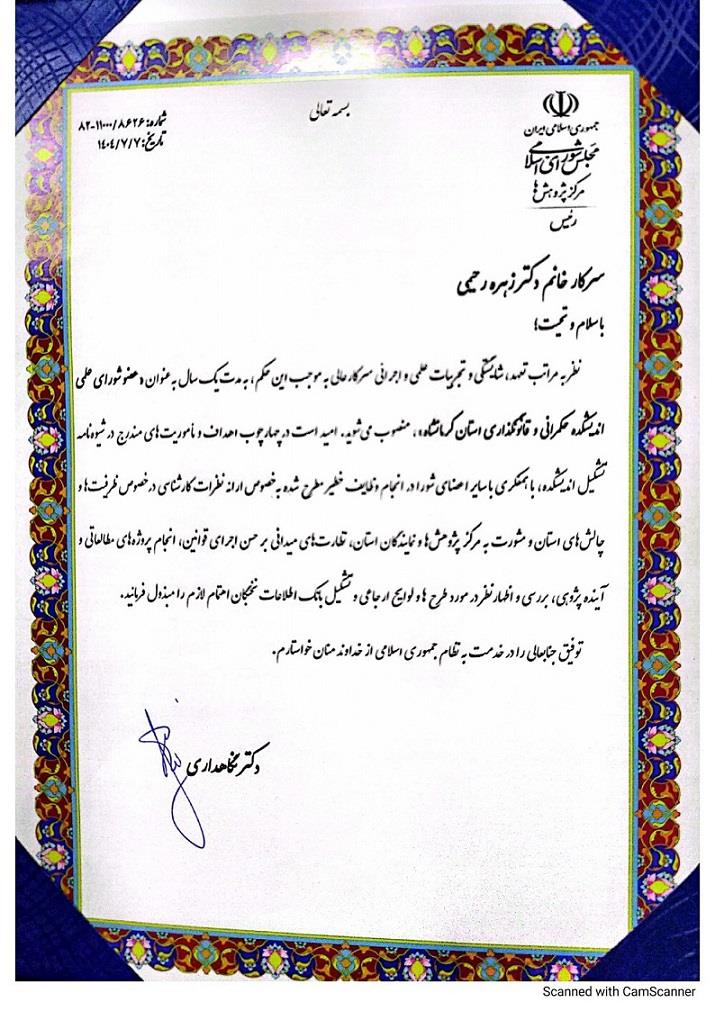 بسمه تعالی
جمهوری اسلامی ایران
مجلس شورای اسلامی
مرکز پژوهش‌ها
رئیس
شماره: ۸۲-۱۱۰۰۰/۸۶۲۶
تاریخ: ۱۴۰۴/۷/۷
سرکار خانم دکتر زهره رحیمی
با سلام و تحیت؛
نظر به مراتب تعهد، شایستگی و تجربیات علمی و اجرائی سرکارعالی به موجب این حکم، به مدت یک سال به عنوان «عضو شورای علمی
اندیشکده حکمرانی و قانونگذاری استان کرمانشاه»، منصوب می‌شوید. امید است در چهارچوب اهداف و مأموریت‌های مندرج در شیوه‌نامه
تشکیل اندیشکده، با همفکری با سایر اعضای شورا در انجام وظایف خطیر مطرح شده به‌خصوص ارائه نظرات کارشناسی درخصوص ظرفیت‌ها و
چالش‌های استان و مشورت به مرکز پژوهش‌ها و نمایندگان استان، نظارت‌های میدانی بر حسن اجرای قوانین، انجام پروژه‌های مطالعاتی و
آینده پژوهی، بررسی و اظهار نظر در مورد طرح ها و لوایح ارجاعی و تشکیل بانک اطلاعات نخبگان اهتمام لازم را مبذول فرمائید.
توفیق جنابعالی را در خدمت به نظام جمهوری اسلامی از خداوند منان خواستارم.
دکتر نگاهداری
Scanned with CamScanner